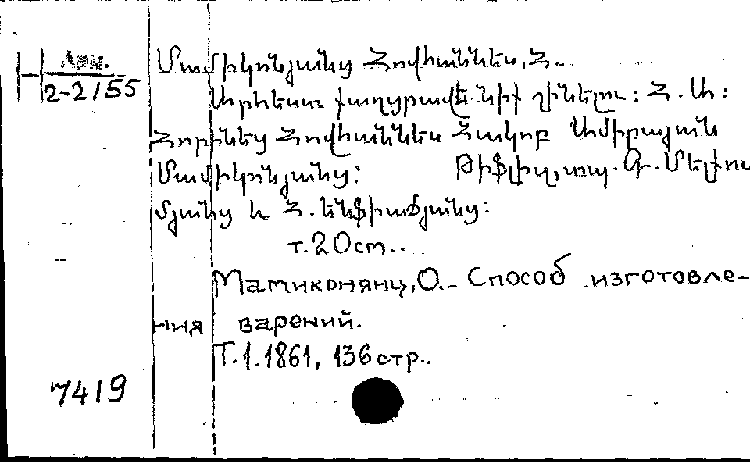 Հ Արմ. 2-2155
Մամիկոնյանց Հովհաննես, Հ.
Արհեստ քաղցրավենիք շինելու: Հ. Ա:
Հորինեց Հովհաննես Հակոբ Ամիրայան
Մամիկոնյանց: Թիֆլիս, տպ. Գ. Մելքու
մյանց և Հ. Ենֆիաճյանց:
т. 20 ст..
Мамиконянц, О. - Способ изготовле-
ния варений.
Т.1.1861, 136 стр..
7419